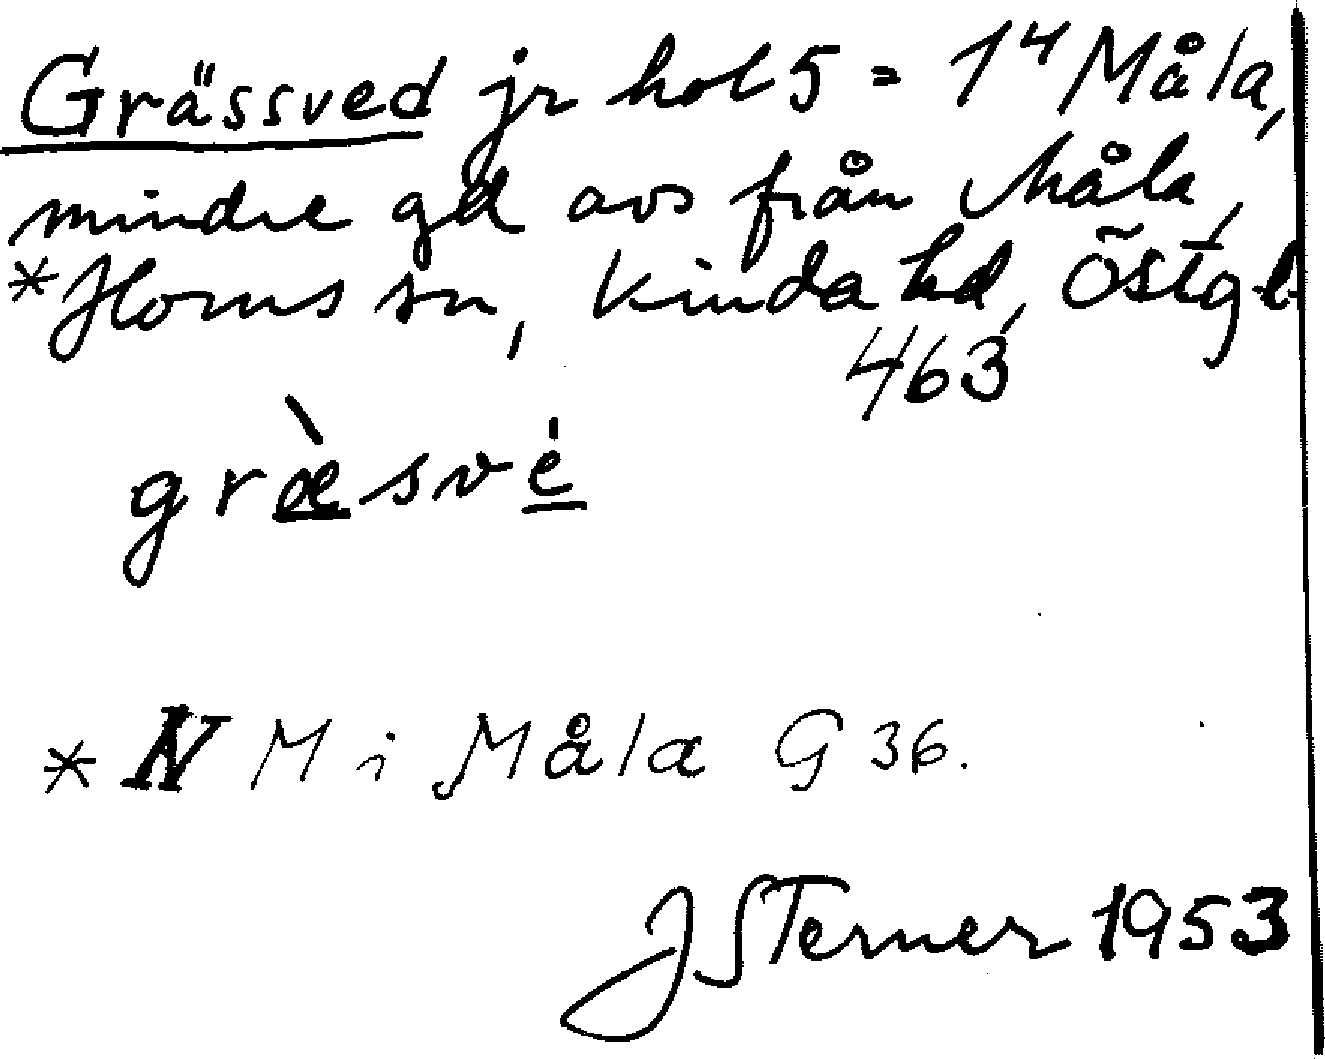 Grässved jr hol 5 = 1⁴ Måla,
mindre gd avs från Måla,
*Horns sn, Kinda hd, Östgl
463
græ̀svė
* N M i Måla G 36.
J Sterner 1953